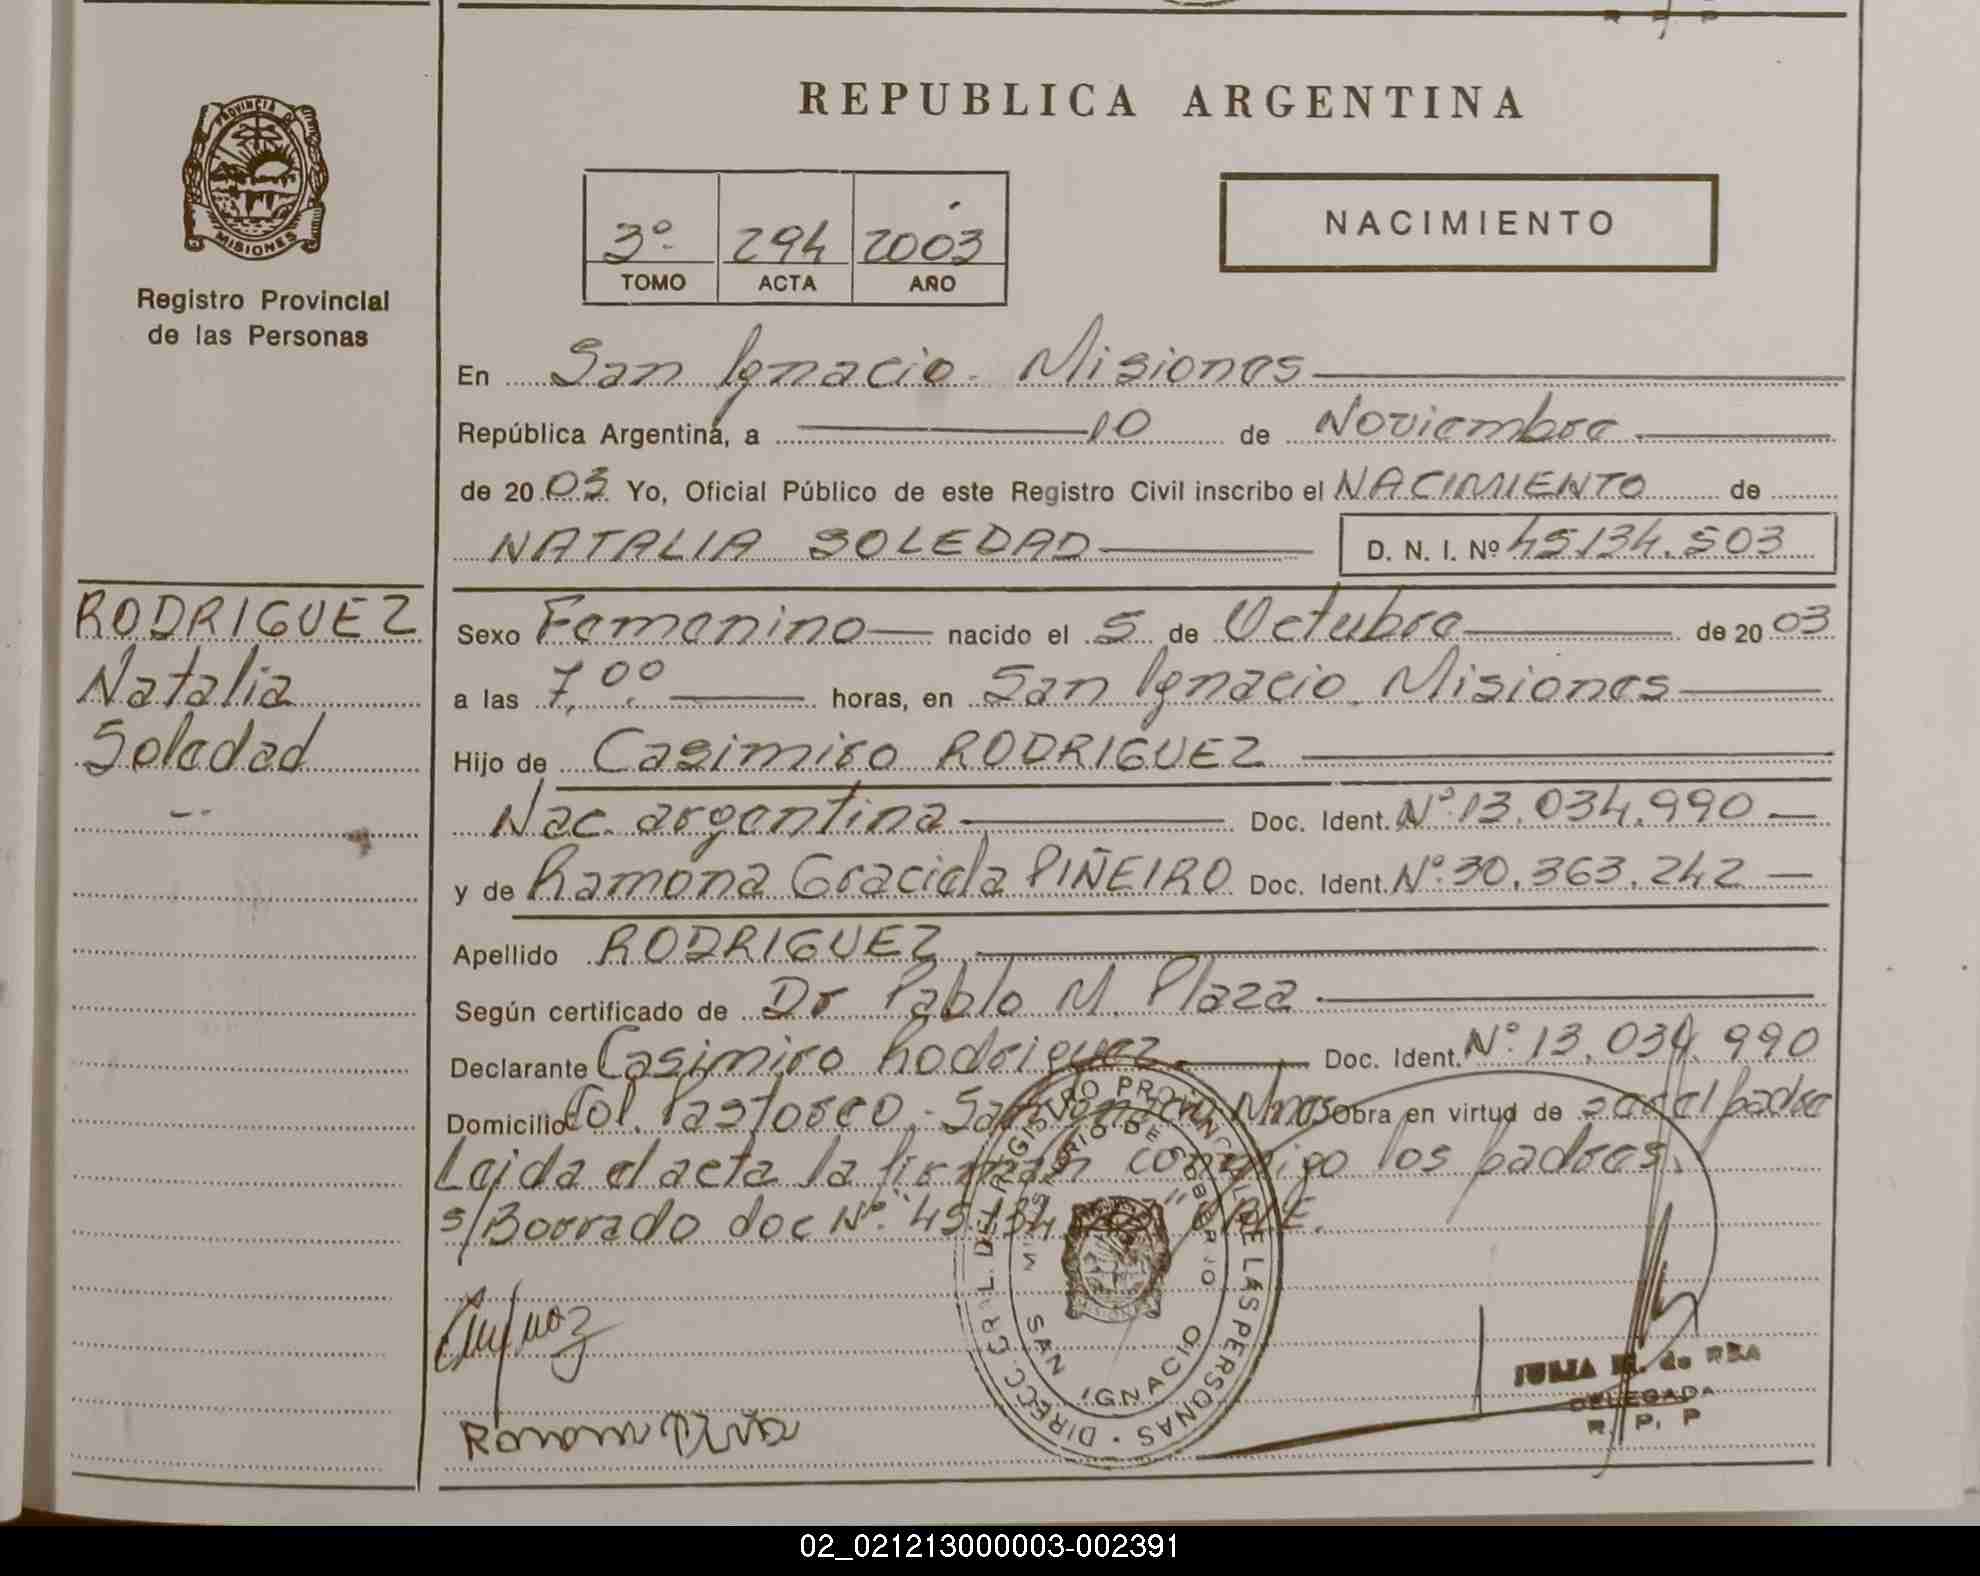 R. P. P
PROVINCIA DE
MISIONES
Registro Provincial
de las Personas
REPUBLICA ARGENTINA
3º 294 2003
TOMO ACTA AÑO
NACIMIENTO
En San Ignacio. Misiones
República Argentina, a 10 de Noviembre
de 2003 Yo, Oficial Público de este Registro Civil inscribo el NACIMIENTO de
NATALIA SOLEDAD D. N. I. Nº 45.134.503
RODRIGUEZ
Natalia
Soledad
Sexo Femenino nacido el 5 de Octubre de 2003
a las 7,00 horas, en San Ignacio. Misiones
Hijo de Casimiro RODRIGUEZ
Nac. argentina Doc. Ident. Nº 13.034.990
y de Ramona Graciela PIÑEIRO Doc. Ident. Nº 30.363.242
Apellido RODRIGUEZ
Según certificado de Dr Pablo M. Plaza
Declarante Casimiro Rodriguez Doc. Ident. Nº 13.034.990
Domicilio Col. Pastoreo. San Ignacio Mnes Obra en virtud de ser el padre
Leida el acta la firman conmigo los padres.
s/Borrado doc Nº "45.134 " VALE.
DIRECC GRAL. DEL REGISTRO PROVINCIAL DE LAS PERSONAS
MINISTERIO DE GOBIERNO
SAN IGNACIO
Ramona
JULIA de REA
DELEGADA
R. P. P
02_021213000003-002391